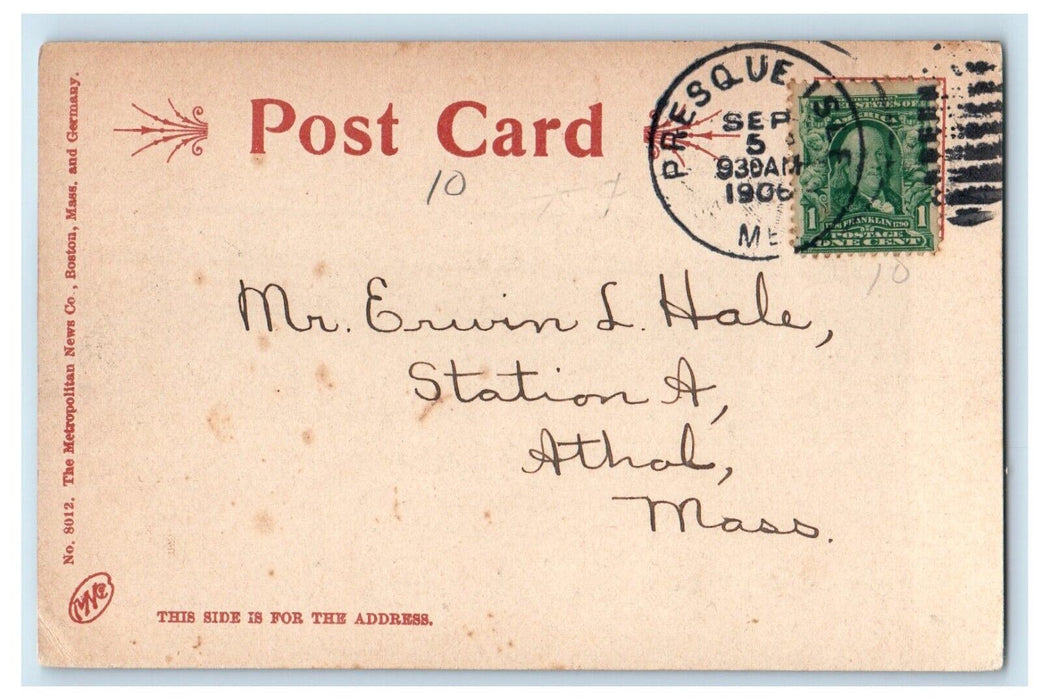 Post Card
PRESQUE ISLE
SEP
5
930AM
1906
ME
UNITED STATES OF
AMERICA
1 FRANKLIN 1790 1
POSTAGE
ONE CENT
10
10
Mr. Erwin L. Hale,
Station A,
Athol,
Mass.
No. 8012. The Metropolitan News Co., Boston, Mass. and Germany.
MNCo
THIS SIDE IS FOR THE ADDRESS.